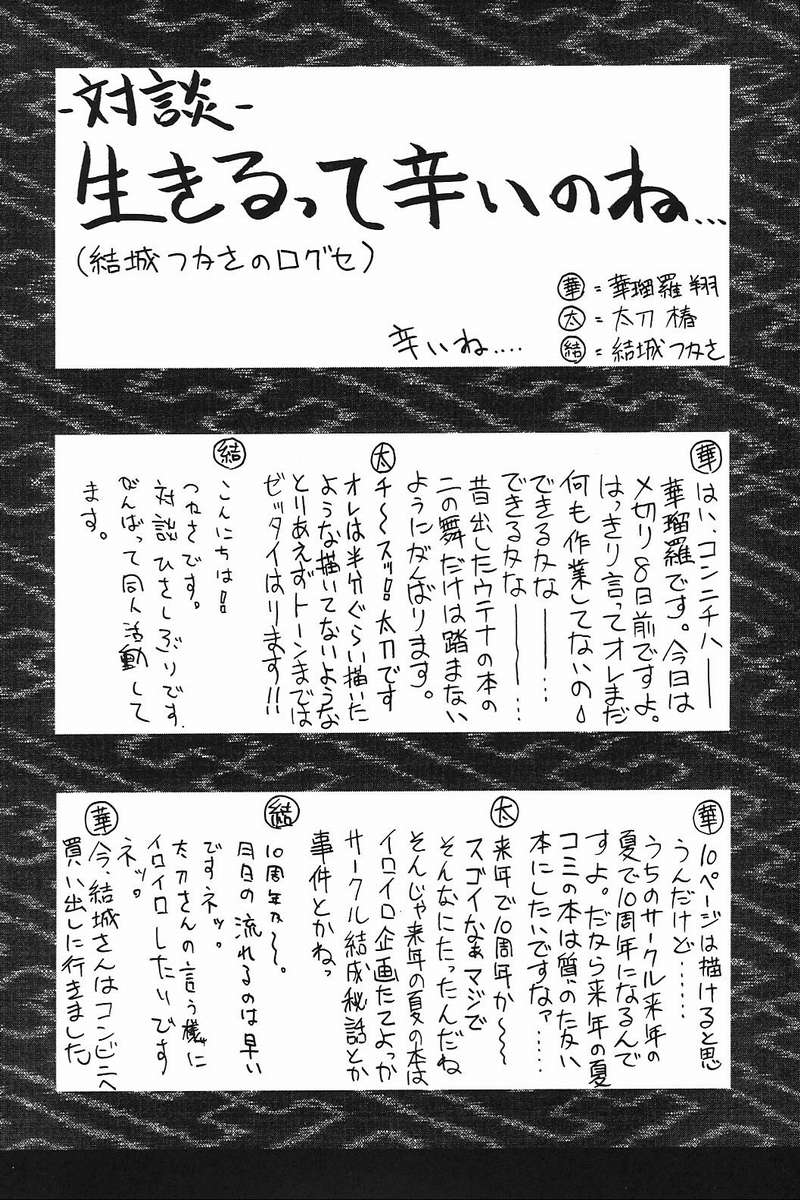 -対談-
生きるって辛いのね…
(結城つかさの口グセ)
華=華瑠羅翔
太=太刀椿
結=結城つかさ
辛いね….
華
はい、コンニチハ――
華瑠羅です。今日は
〆切り8日前ですよ。
はっきり言ってオレまだ
何も作業してないの
できるかな――…
できるかな――…
昔出したウテナの本の
二の舞だけは踏まない
ようにがんばります。
太
チ〜スッ!!太刀です
オレは半分ぐらい描いた
ような描いてないような
とりあえずトーンまでは
ゼッタイはります!!
結
こんにちは!!
つかさです。
対談ひさしぶりです.
がんばって同人活動して
ます。
華
10ページは描けると思
うんだけど……
うちのサークル来年の
夏で10周年になるんで
すよ。だから来年の夏
コミの本は質のたかい
本にしたいですなァ……
太
来年で10周年か〜〜
スゴイなぁマジで
そんなにたったんだね
そんじゃ来年の夏の本は
イロイロ企画たてよっか
サークル結成秘話とか
事件とかねっ
結
10周年か〜。
月日の流れるのは早い
ですネッ。
太刀さんの言う様に
イロイロしたいです
ネッ。
華
今、結城さんはコンビニへ
買い出しに行きました